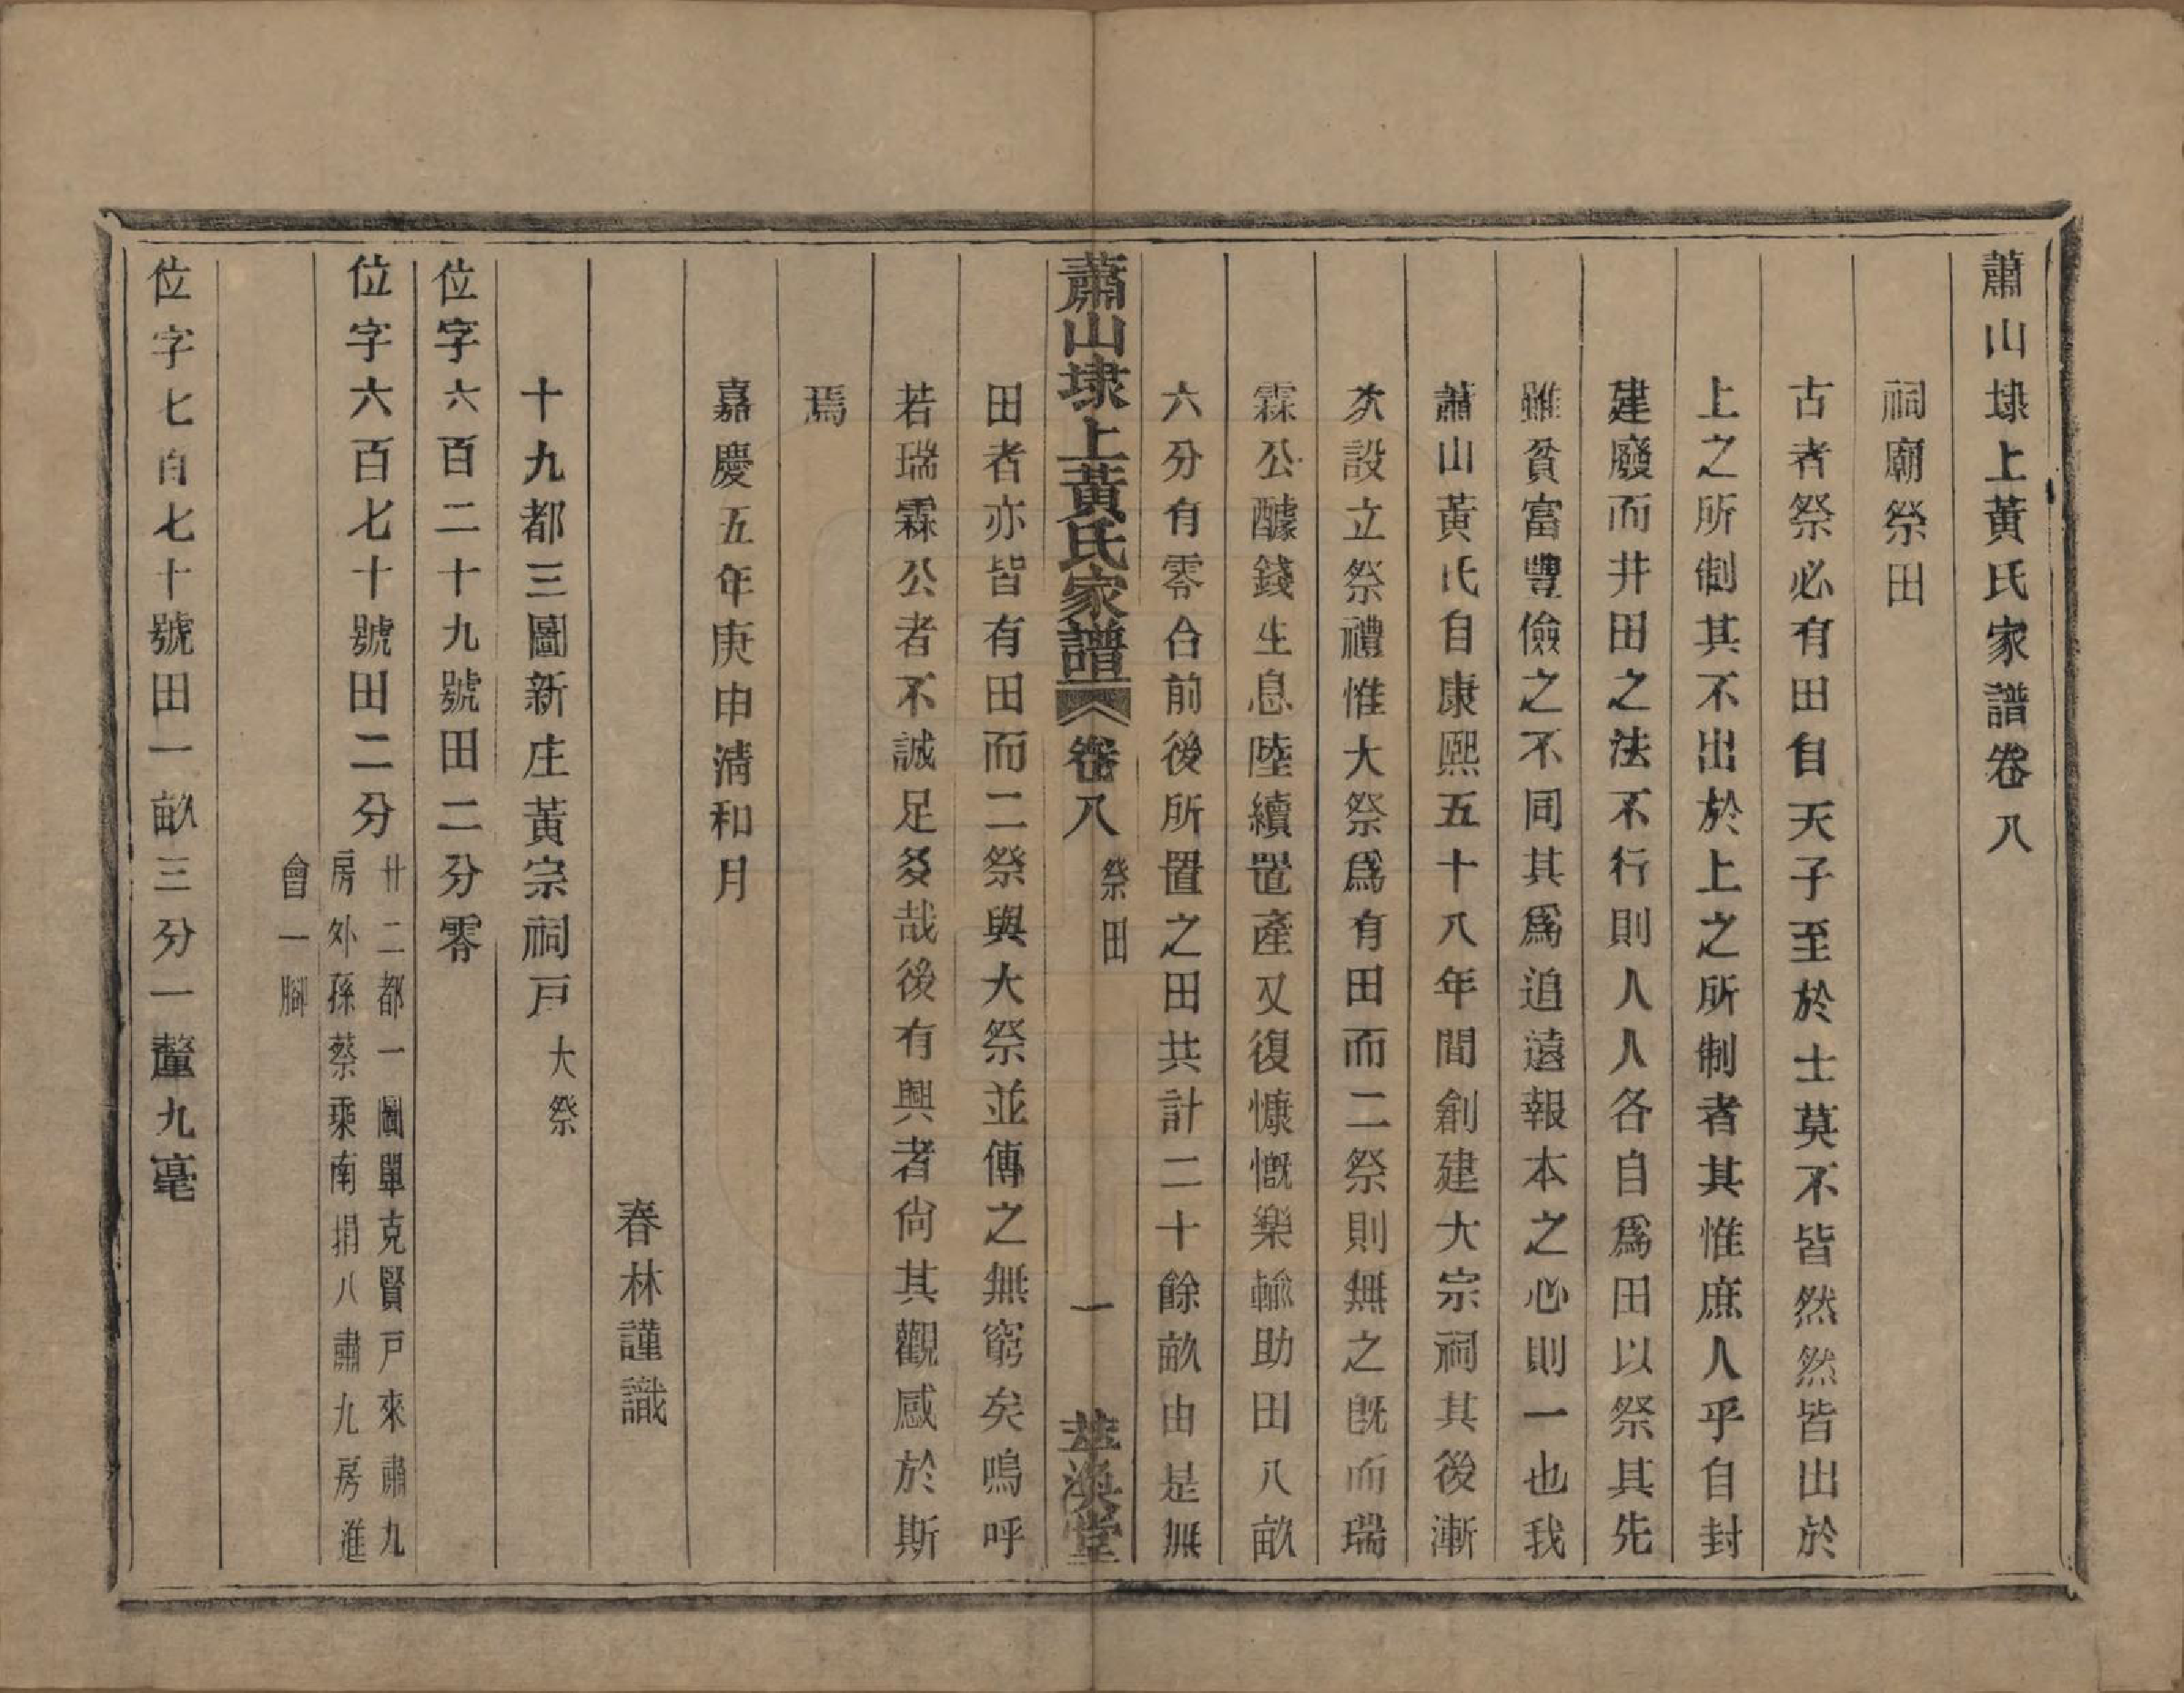 蕭山埭上黃氏家譜卷八
祠廟祭田
古者祭必有田自天子至於士莫不皆然然皆出於
上之所制其不出於上之所制者其惟庶人乎自封
建廢而井田之法不行則人人各自爲田以祭其先
雖貧富豐儉之不同其爲追遠報本之心則一也我
蕭山黃氏自康熙五十八年間創建大宗祠其後漸
次設立祭禮惟大祭爲有田而二祭則無之旣而瑞
霖公醵錢生息陸續置產又復慷慨樂輸助田八畝
六分有零合前後所置之田共計二十餘畝由是無
蕭山埭上黃氏家譜 卷八 祭田 一 萃渙堂
田者亦皆有田而二祭與大祭並傳之無窮矣嗚呼
若瑞霖公者不誠足多哉後有興者尙其觀感於斯
焉
嘉慶五年庚申淸和月
春林謹識
十九都三圖新庄黃宗祠戸 大祭
位字六百二十九號田二分零
位字六百七十號田二分 廿二都一圖單克賢戸來肅九
房外孫蔡乘南捐八肅九房進
會一腳
位字七百七十號田一畝三分一釐九毫